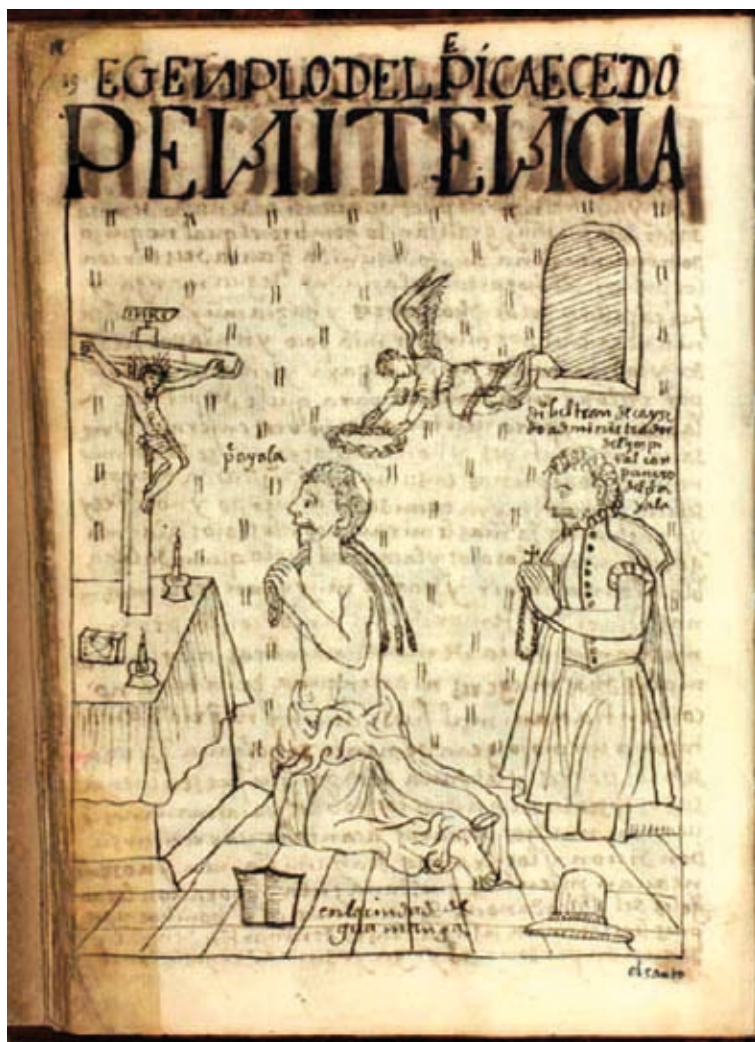 19
EGENPLO DEL Pᴱ Í CAECEDO
PENITENCIA
INRI
pᵉ ayala
beltran de cayse
do administrador
del ospi
tal con
panero
del pᵉ
yala
en la ciudad de
guamanga
el santo